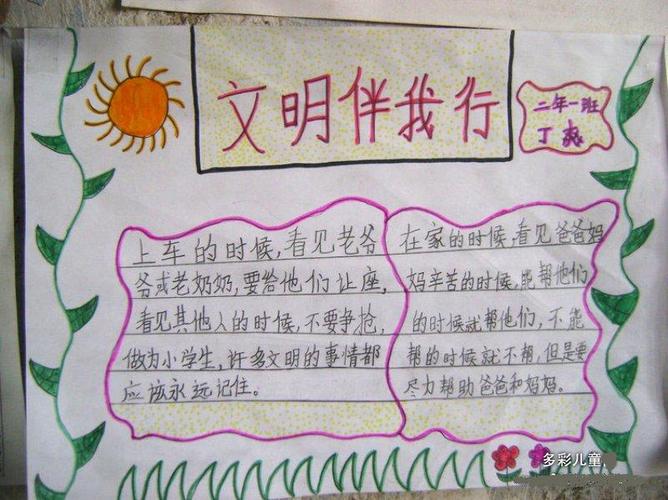 文明伴我行
二年一班
丁爽
上车的时候,看见老爷
爷或老奶奶,要给他们让座,
看见其他人的时候,不要争抢,
做为小学生,许多文明的事情都
应该永远记住。
在家的时候,看见爸爸妈
妈辛苦的时候,能帮他们
的时候就帮他们,不能
帮的时候就不帮,但是要
尽力帮助爸爸和妈妈。
多彩儿童